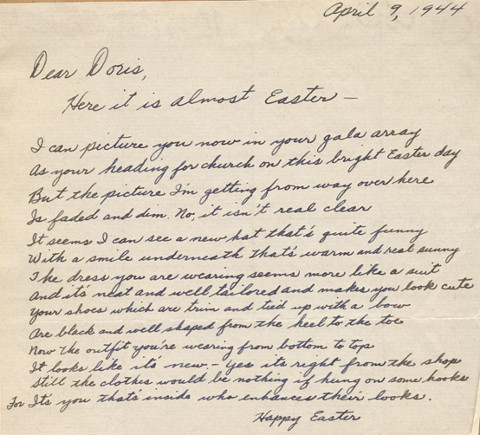 April 9, 1944
Dear Doris,
Here it is almost Easter —
I can picture you now in your gala array
As your heading for church on this bright Easter day
But the picture I'm getting from way over here
Is faded and dim. No, it isn't real clear
It seems I can see a new hat that's quite funny
With a smile underneath that's warm and real sunny
The dress you are wearing seems more like a suit
And it's neat and well tailored and makes you look cute
Your shoes which are trim and tied up with a bow
Are black and well shaped from the heel to the toe
Now the outfit you're wearing from bottom to top
It looks like it's new. - Yes its right from the shop
Still the clothes would be nothing if hung on some hooks
For It's you that's inside who enhances their looks.
Happy Easter